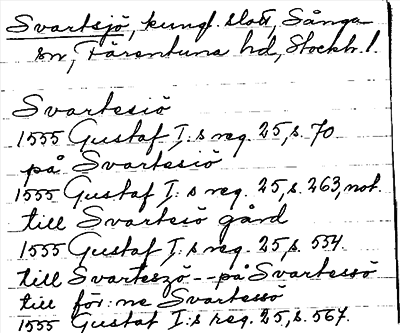 Svartsjö, kungl. slott, Sånga
sn, Färentuna hd, Stockh. l.
Svartesiö
1555 Gustaf I:s reg. 25, s. 70.
på Svartesiö
1555 Gustaf I:s reg. 25, s. 263, not.
till Svartesö gård
1555 Gustaf I:s reg. 25, s. 554.
till Svarteszö -- på Svartessö
till för:ne Svartessö
1555 Gustaf I:s reg. 25, s. 567.